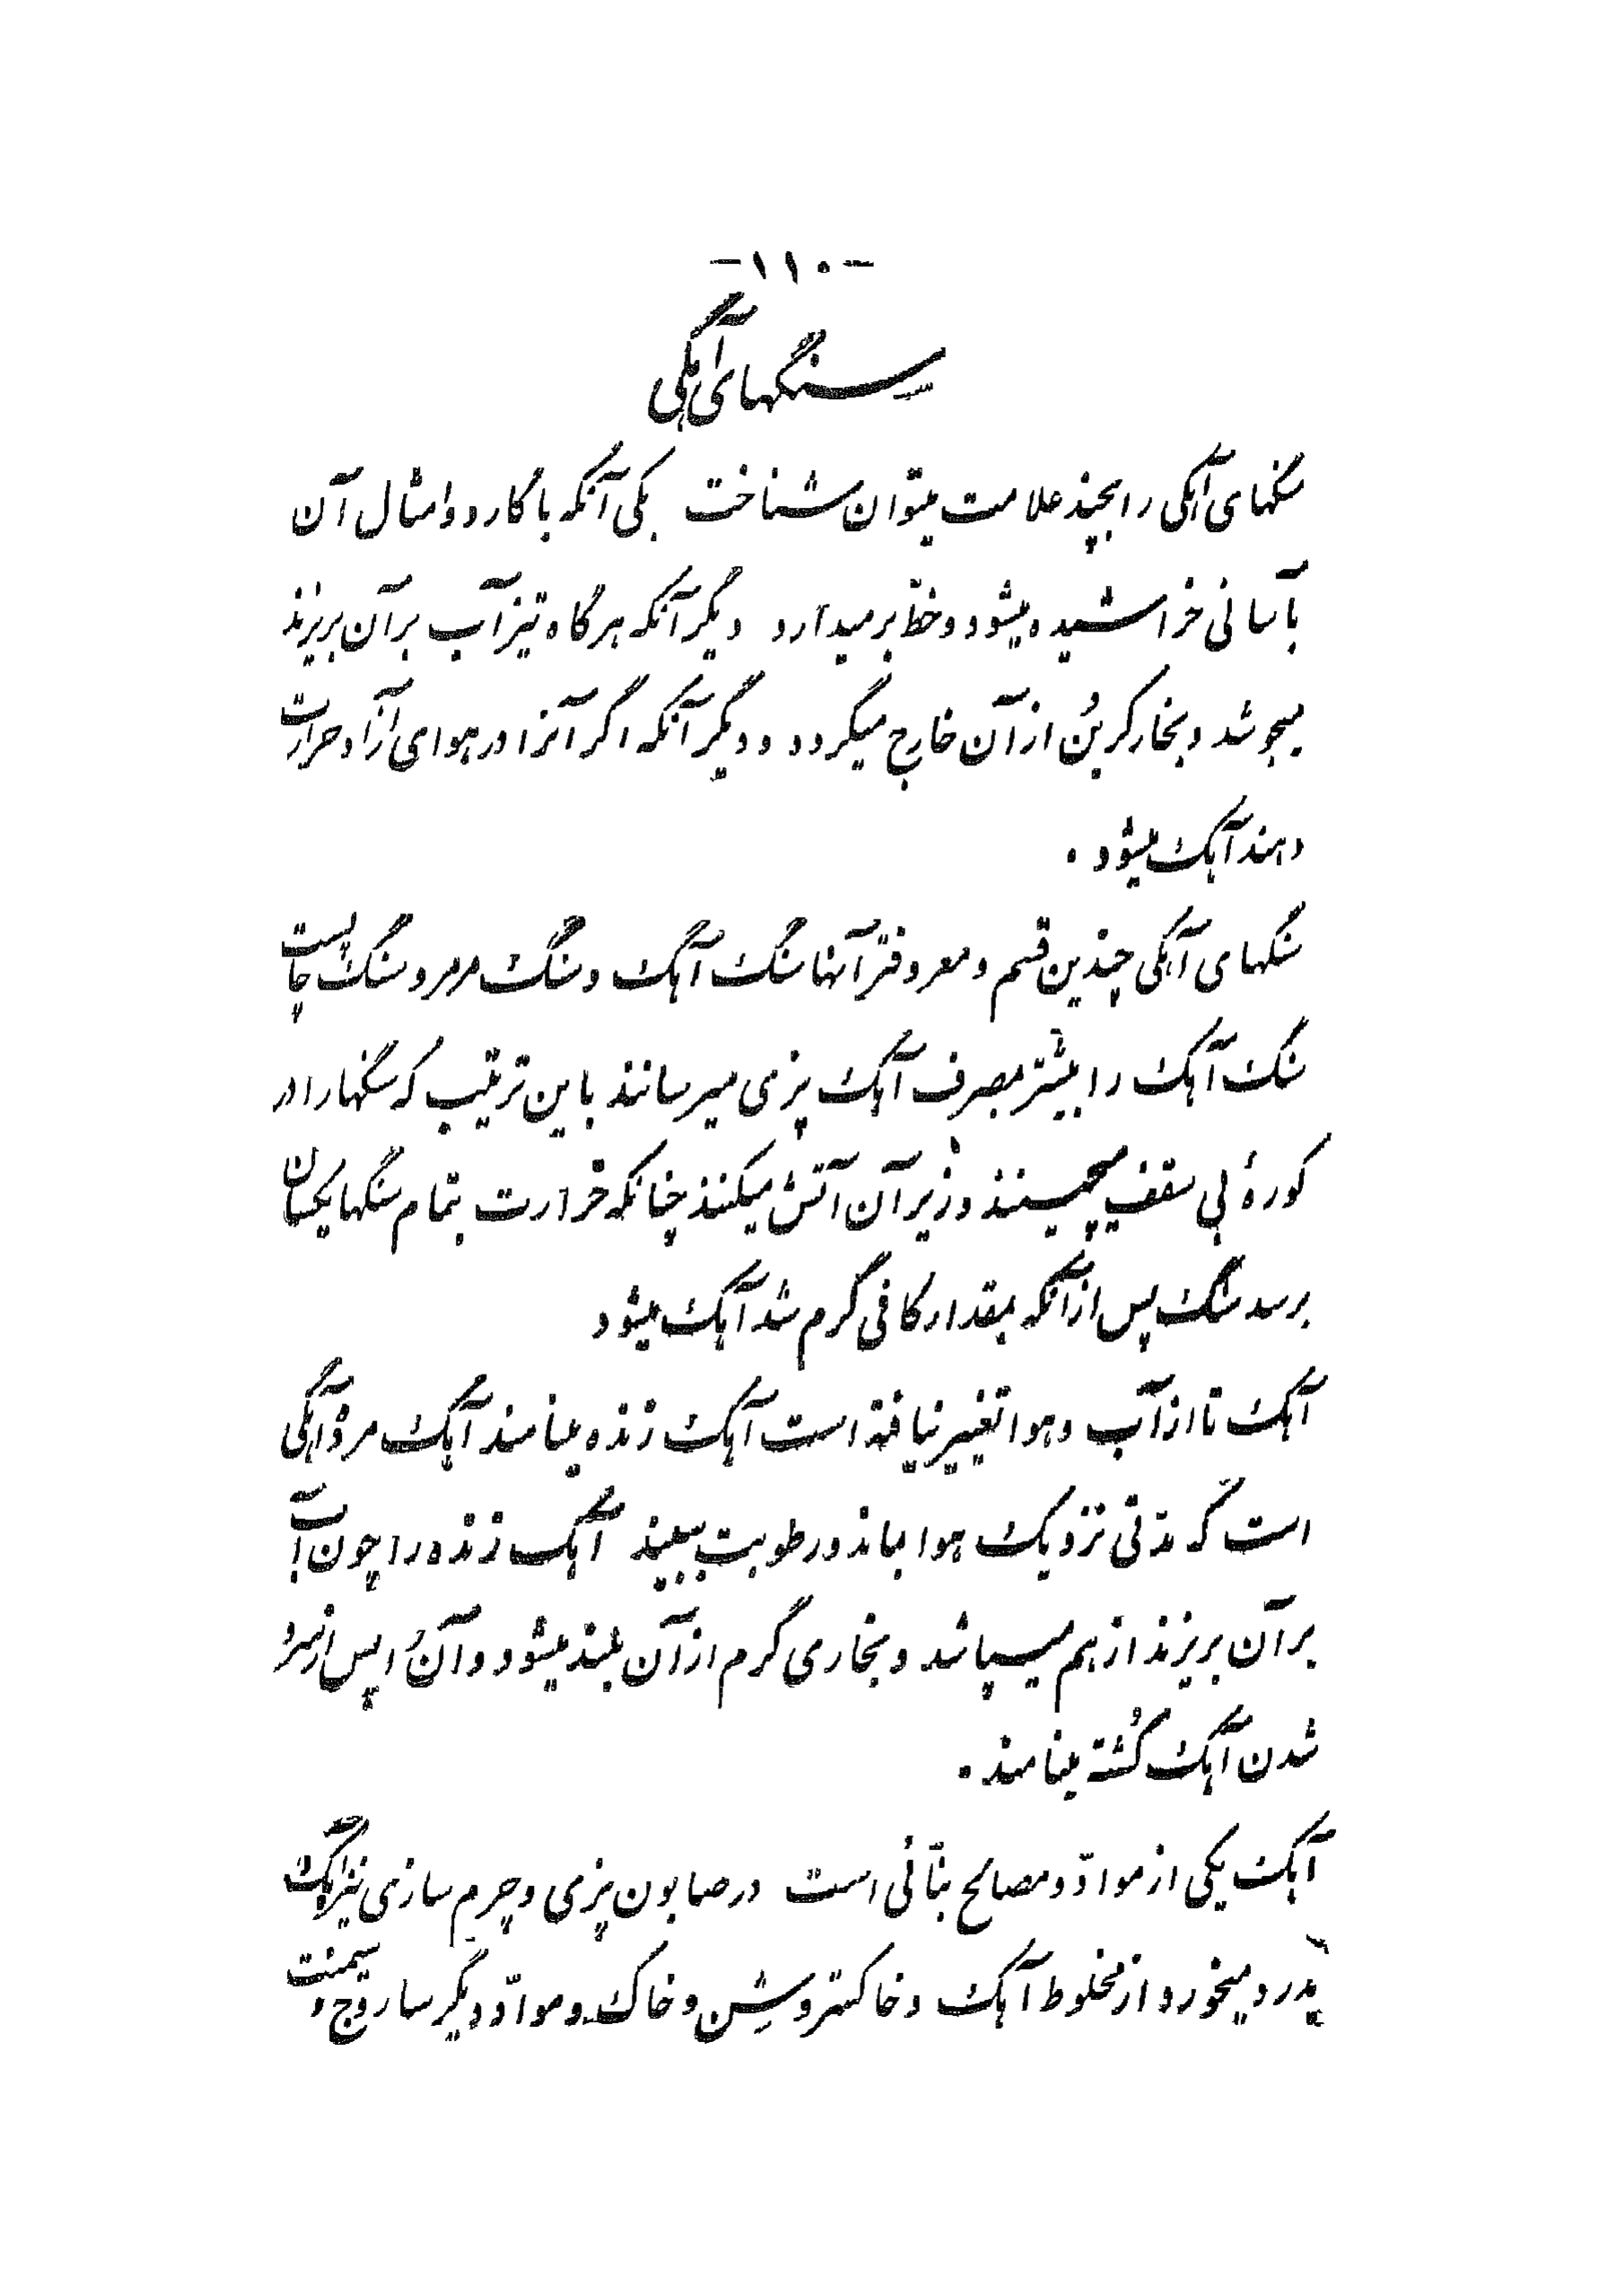 -۱۱۰-
سنگهای آهکی
سنگهای آهکی را بچند علامت میتوان شناخت یکی آنکه با کارد و امثال آن
بآسانی خراشیده میشود و خطّ برمیدارد دیگر آنکه هرگاه تیزآب برآن بریزند
میجوشد و بخار کربُن از آن خارج میگردد و دیگر آنکه اگر آنرا در هوای آزاد حرارت
دهند آهک میشود .
سنگهای آهکی چندین قسم و معروفتر آنها سنگ آهک و سنگ مرمر و سنگ چاپست
سنگ آهک را بیشتر بمصرف آهک پزی میرسانند باین ترتیب که سنگها را در
کورهٔ بی سقف میچینند و زیر آن آتش میکنند چنانکه حرارت بتمام سنگها یکسان
برسد سنگ پس از آنکه بمقدار کافی گرم شد آهک میشود
آهک تا از آب و هوا تغییر نیافته است آهک زنده مینامند آهک مرده آهکی
است که مدّتی نزدیک هوا بماند و رطوبت ببیند آهک زنده را چون آب
بر آن بریزند از هم میپاشد و بخاری گرم از آن بلند میشود و آن را پس از سرد
شدن آهک کُشته مینامند .
آهک یکی از موادّ و مصالح بنّائی است در صابون پزی و چرم سازی نیز آهک
بدرد میخورد از مخلوط آهک و خاکستر و شِن و خاک و موادّ دیگر ساروج و سیمنت